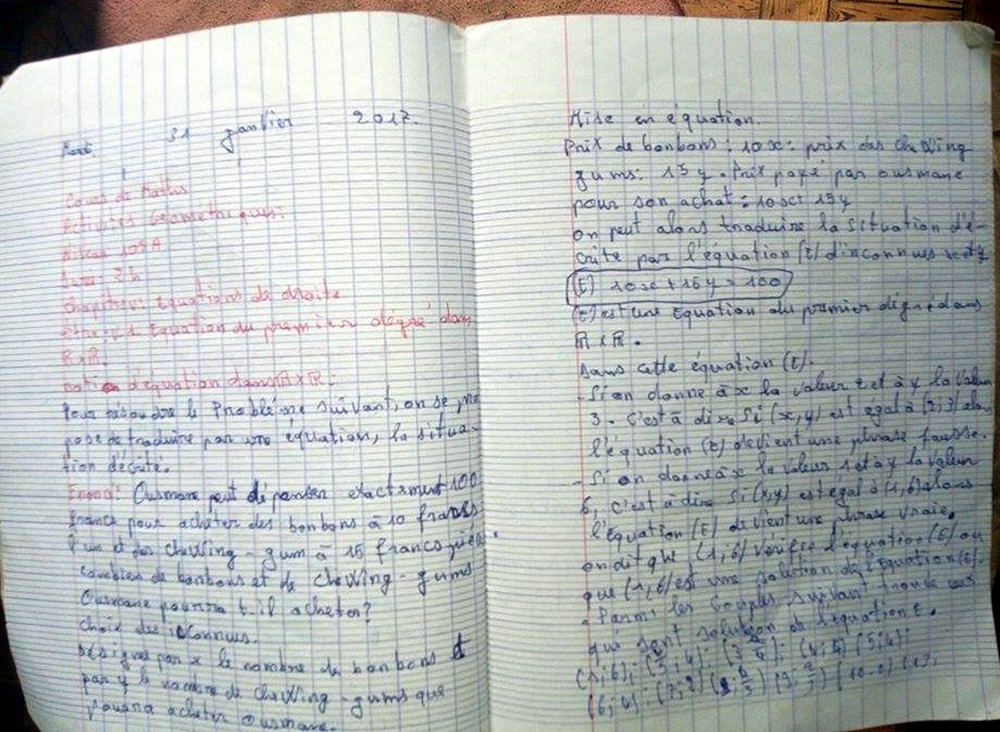 31 janvier 2017.
Cours de Maths
Activités Géometriques:
Niveau 10e A
Durée: 2h
Chapitre: Equations de droite
Equation du premier degré dans
R x R.
notion d'équation dans R x R:
Pour résoudre le Problème suivant, on se pro
pose de traduire par une équation, la situa-
tion décrite.
Enoncé: Ousmane peut dépenser exactement 100
francs pour acheter des bonbons à 10 francs
l'un et des chewing-gum à 15 francs
combien de bonbons et de chewing-gums
Ousmane pourra t-il acheter?
Choix des inconnus.
Désignes par x le nombre de bonbons et
par y le nombre de chewing-gums que
pourra acheter Ousmane.
Mise en équation.
Prix de bonbons: 10x: prix des chewing
gums: 15y. Prix payé par ousmane
pour son achat: 10x+15y
on peut alors traduire la situation dé-
crite par l'équation (E) d'inconnues x et y
(E) 10x + 15y = 100
(E) est une Equation du premier dégré dans
R x R.
Dans cette équation (E).
- Si on donne à x la valeur 2 et à y la valeur
3. C'est à dire Si (x,y) est egal à (2;3) alors
l'équation (E) devient une phrase fausse.
- Si on donne à x la valeur 1 et à y la valeur
6, c'est à dire Si (x,y) est egal à (1,6) alors
l'équation (E) devient une phrase vraie.
on dit que (1,6) vérifie l'équation (E) ou
que (1,6) est une solution de l'équation (E).
Parmi les couples suivant trouve ceux
qui sont solution de l'équation E.
(1,6); (4; 4) (5; 4);
(7; 2)